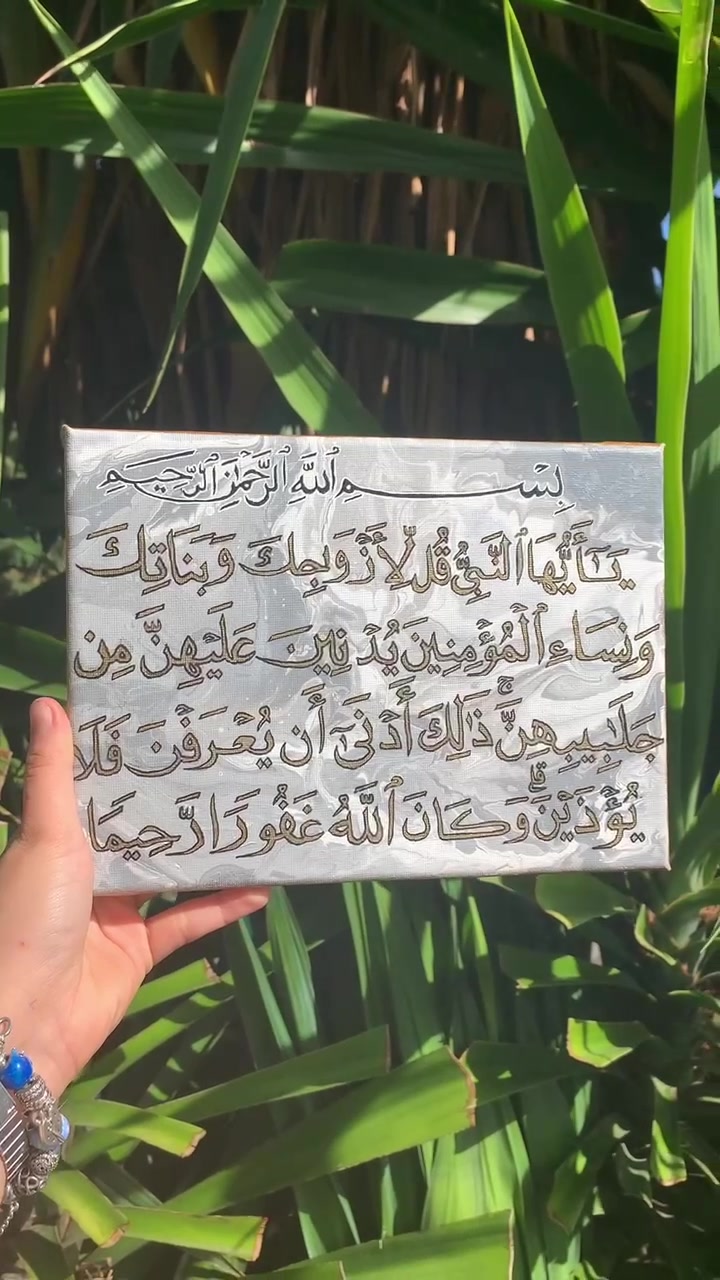 بِسْمِ ٱللَّهِ ٱلرَّحْمَٰنِ ٱلرَّحِيمِ
يَٰٓأَيُّهَا ٱلنَّبِىُّ قُل لِّأَزْوَٰجِكَ وَبَنَاتِكَ
وَنِسَاءِ ٱلْمُؤْمِنِينَ يُدْنِينَ عَلَيْهِنَّ مِن
جَلَٰبِيبِهِنَّ ۚ ذَٰلِكَ أَدْنَىٰٓ أَن يُعْرَفْنَ فَلَا
يُؤْذَيْنَ ۗ وَكَانَ ٱللَّهُ غَفُورًا رَّحِيمًا